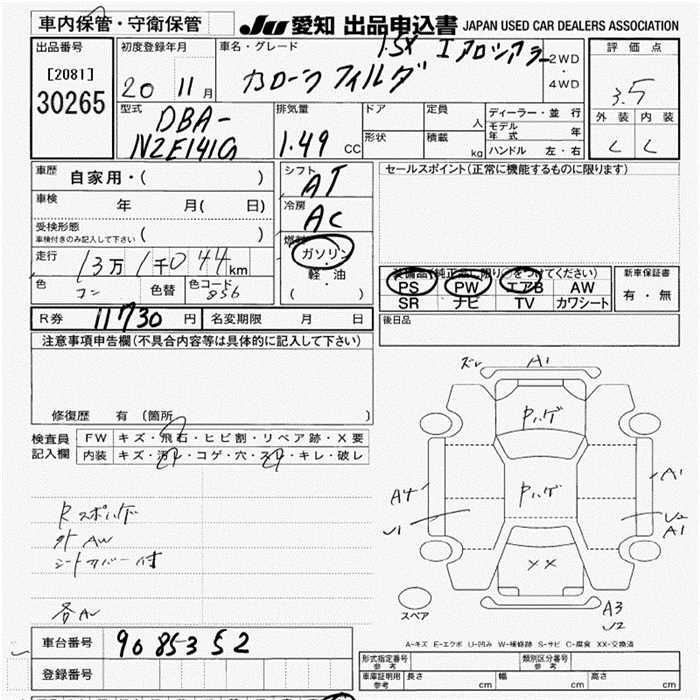 車内保管・守衛保管
JU 愛知 出品申込書 JAPAN USED CAR DEALERS ASSOCIATION
出品番号
[2081]
30265
初度登録年月
20 11月
車名・グレード
1.5X エアロツアラー
カローラフィルダー
2WD
・
4WD
評価点
3.5
外装 内装
C C
型式
DBA-
NZE141G
排気量
1.49 CC
ドア
形状
定員 人
積載 kg
ディーラー・並行
モデル年式 年
ハンドル 左・右
車歴 自家用・( )
車検 年 月( 日)
受検形態
車検付きのみ記入して下さい ( )
走行 13万1千044km
色 コン 色替 色コード 8S6
シフト AT
冷房 AC
燃料
ガソリン
・
軽油
( )
セールスポイント(正常に機能するものに限ります)
装備品(純正品に限り○をつけてください)
PS PW エアB AW
SR ナビ TV カワシート
新車保証書
有・無
R券 11730円 名変期限 月 日
後日品
注意事項申告欄(不具合内容等は具体的に記入して下さい)
修復歴 有(箇所 )
検査員記入欄
FW キズ・飛石・ヒビ割・リペア跡・X要
内装 キズ・汚れ・コゲ・穴・スレ・キレ・破レ
Rスポハゲ
外AW
シートカバー付
各A
ズレ A1
Pハゲ
Pハゲ
XX
A4
U1
A1
A1
スペア
A3
U2
A-キズ E-エクボ U-凹み W-補修跡 S-サビ C-腐食 XX-交換済
車台番号 9085352
登録番号
形式指定番号 参考
類別区分番号 参考
車庫証明用 参考 長さ cm 幅 cm 高さ cm